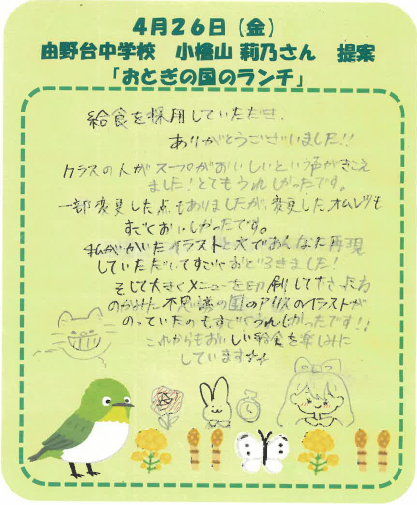 ４月２６日（金）
由野台中学校　小檜山 莉乃さん　提案
「おとぎの国のランチ」
給食を採用していただき、
ありがとうございました!!
クラスの人がスープがおいしいという声がきこえ
ました！とてもうれしかったです。
一部変更した点もありましたが、変更したオムレツも
すごくおいしかったです。
私がかいたイラストと
再現
していただいてすごくおどろきました！
そして大きくメニューを印刷して下さった方
のかみに不思議の国のアリスのイラストが
のっていたのもすごくうれしかったです!!
これからもおいしい給食を楽しみに
しています